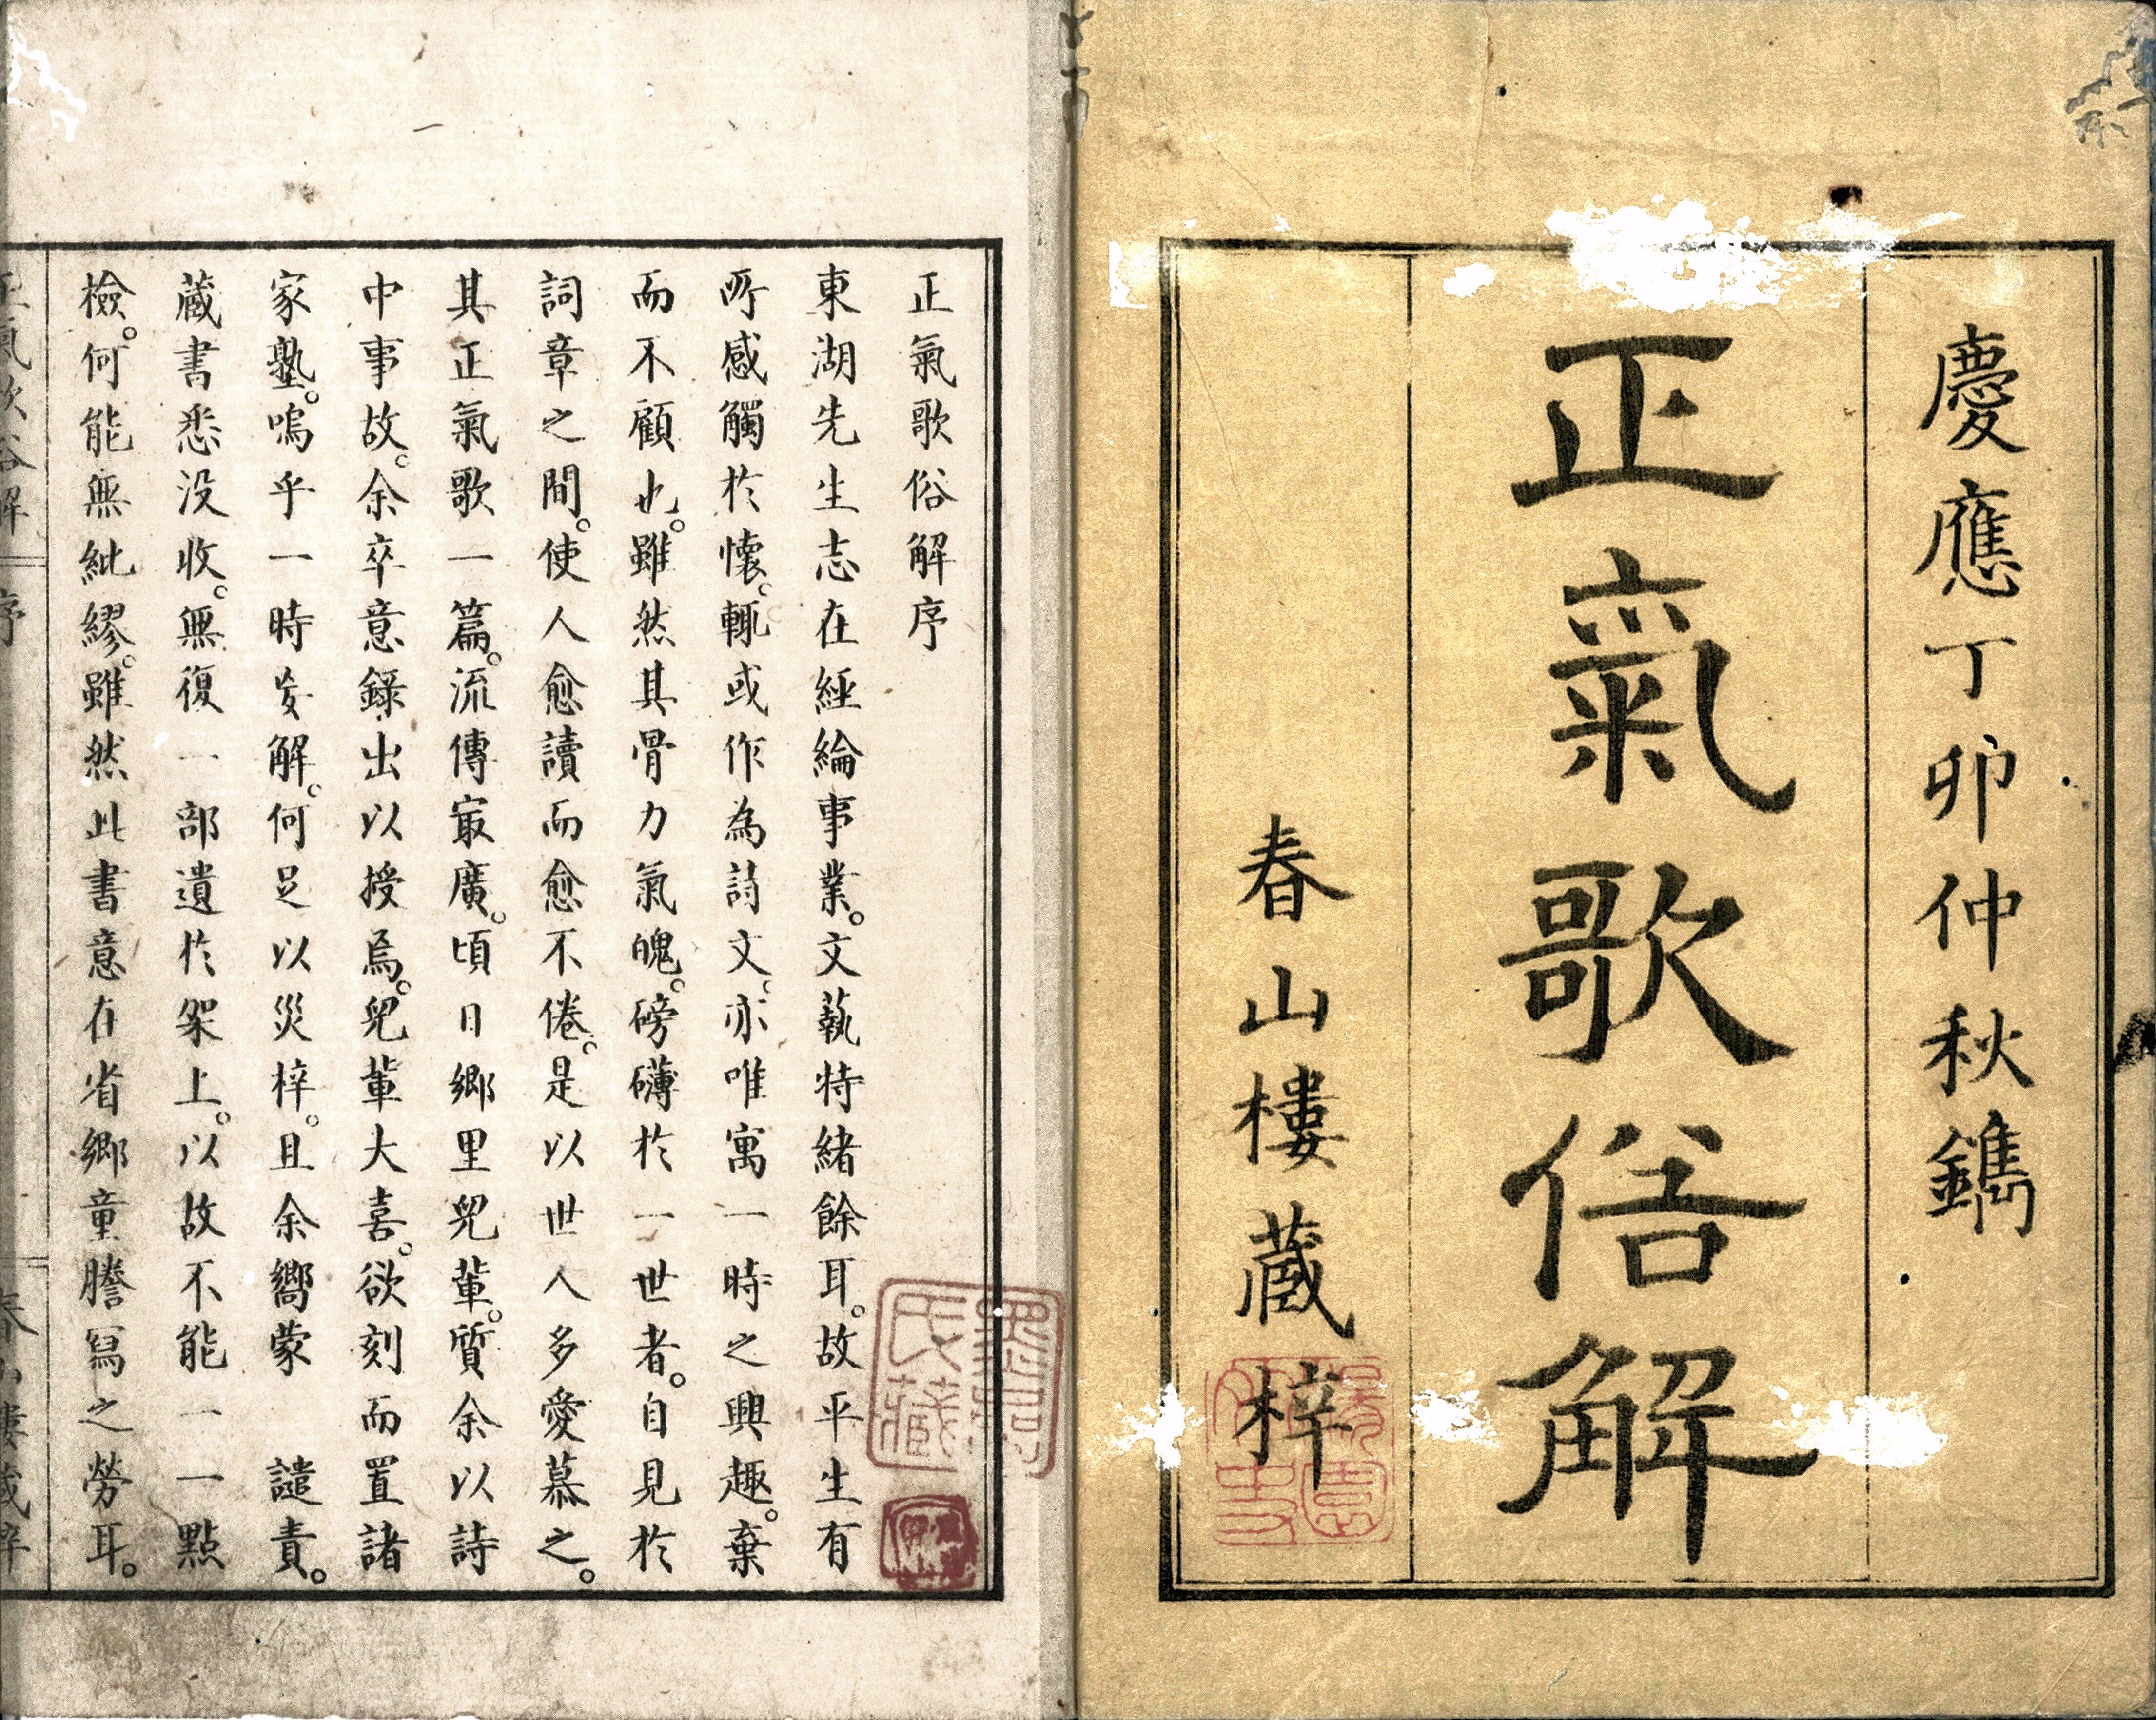 慶應丁卯仲秋鐫
正氣歌俗解
春山樓蔵梓
正氣歌俗解序
東湖先生志在經綸事業。文藝特緒餘耳。故平生有
所感觸於懷。輒或作為詩文。亦唯寓一時之興趣。棄
而不顧也。雖然其骨力氣魄。磅礴於一世者。自見於
詞章之間。使人愈讀而愈不倦。是以世人多愛慕之。
其正氣歌一篇。流傳冣廣。頃日郷里兒輩。質余以詩
中事故。余卒意錄出以授焉。兒輩大喜。欲刻而置諸
家塾。嗚乎一時妄解。何足以災梓。且余嚮蒙 譴責。
蔵書悉没收。無復一部遺於架上。以故不能一一點
檢。何能無紕繆。雖然此書意在省郷童謄冩之勞耳。
正氣歌俗解 序 春山樓蔵梓
氏藏